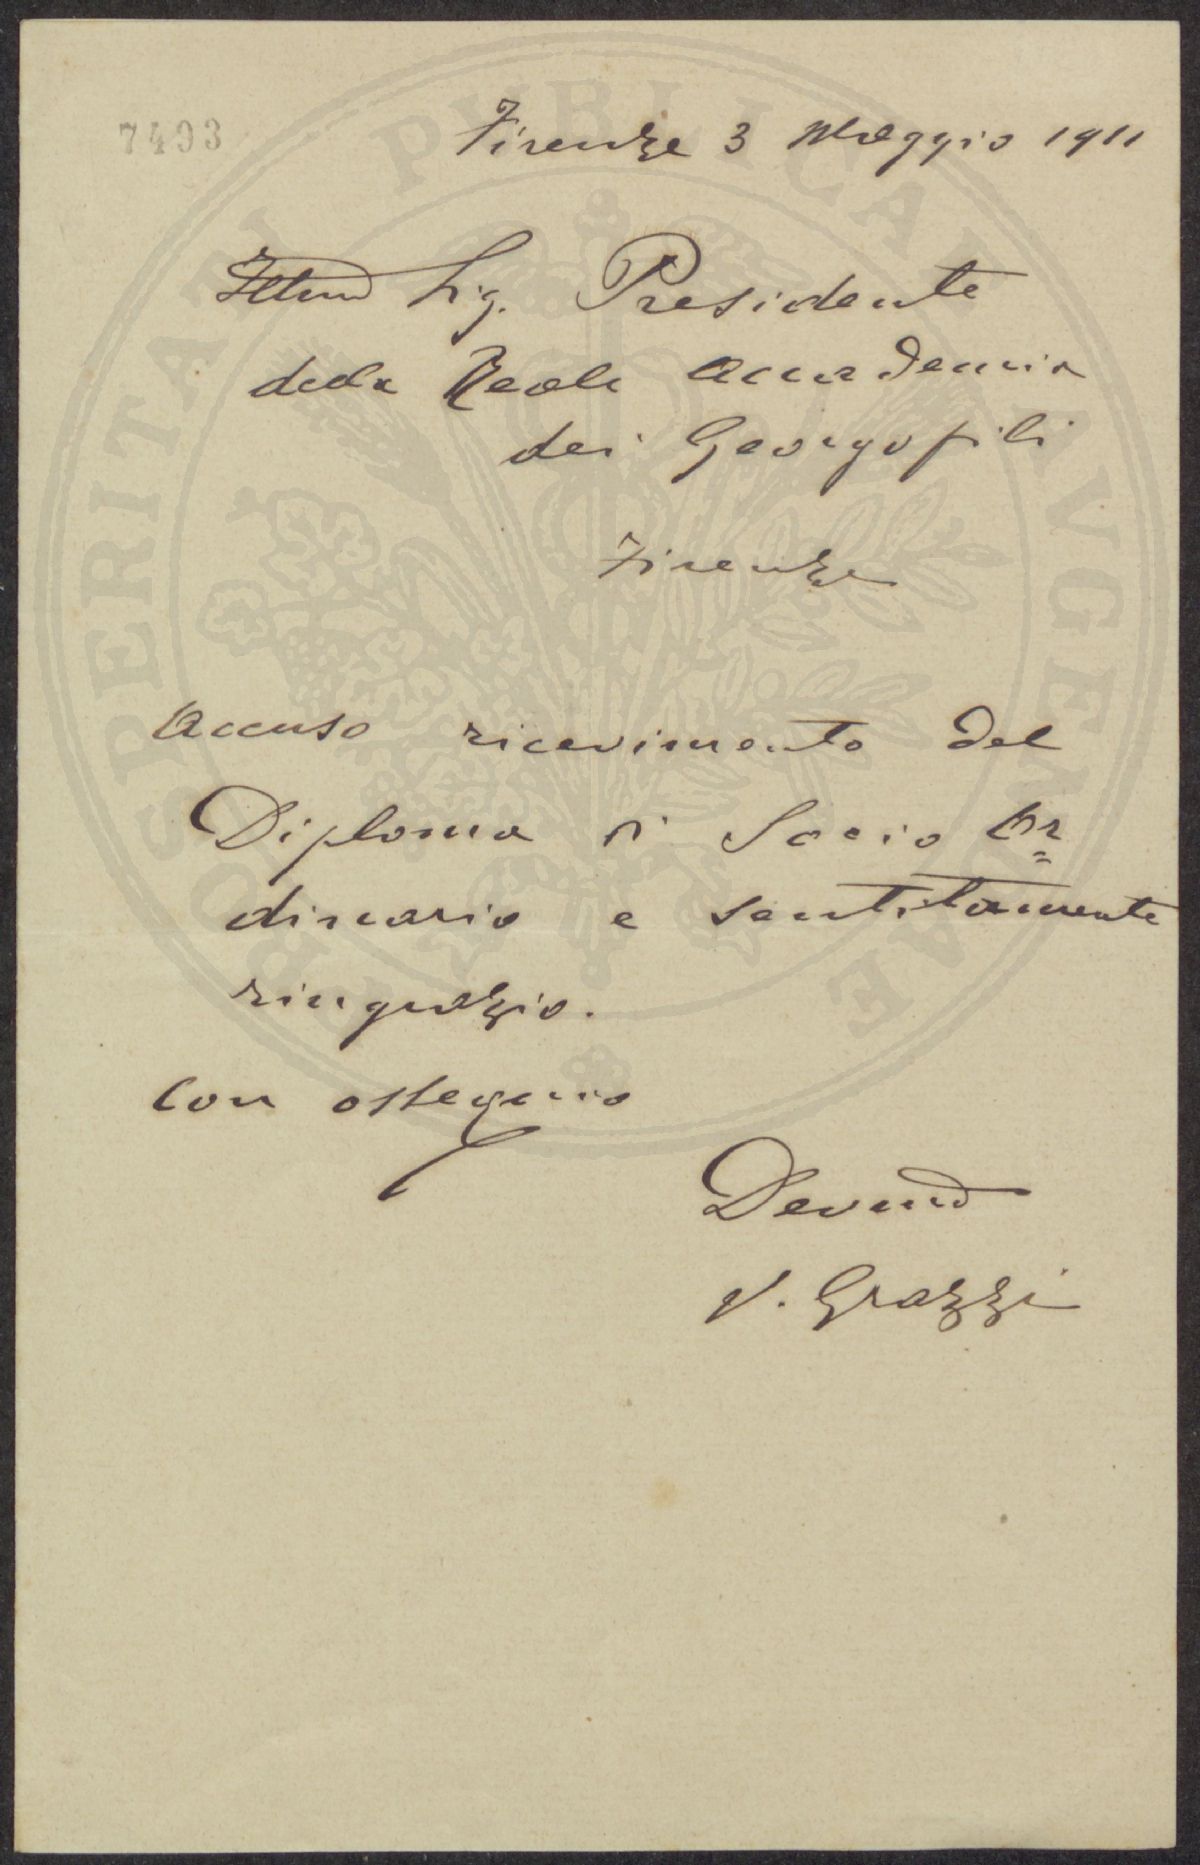 7493
Firenze 3 Maggio 1911
Illmo Sig. Presidente
della Reale Accademia
dei Georgofili
Firenze
Accuso ricevimento del
Diploma di Socio Or=
dinario e sentitamente
ringrazio.
Con ossequio
Devmo
V. Grazzi
PROSPERITATI PVBLICAE AVGENDAE